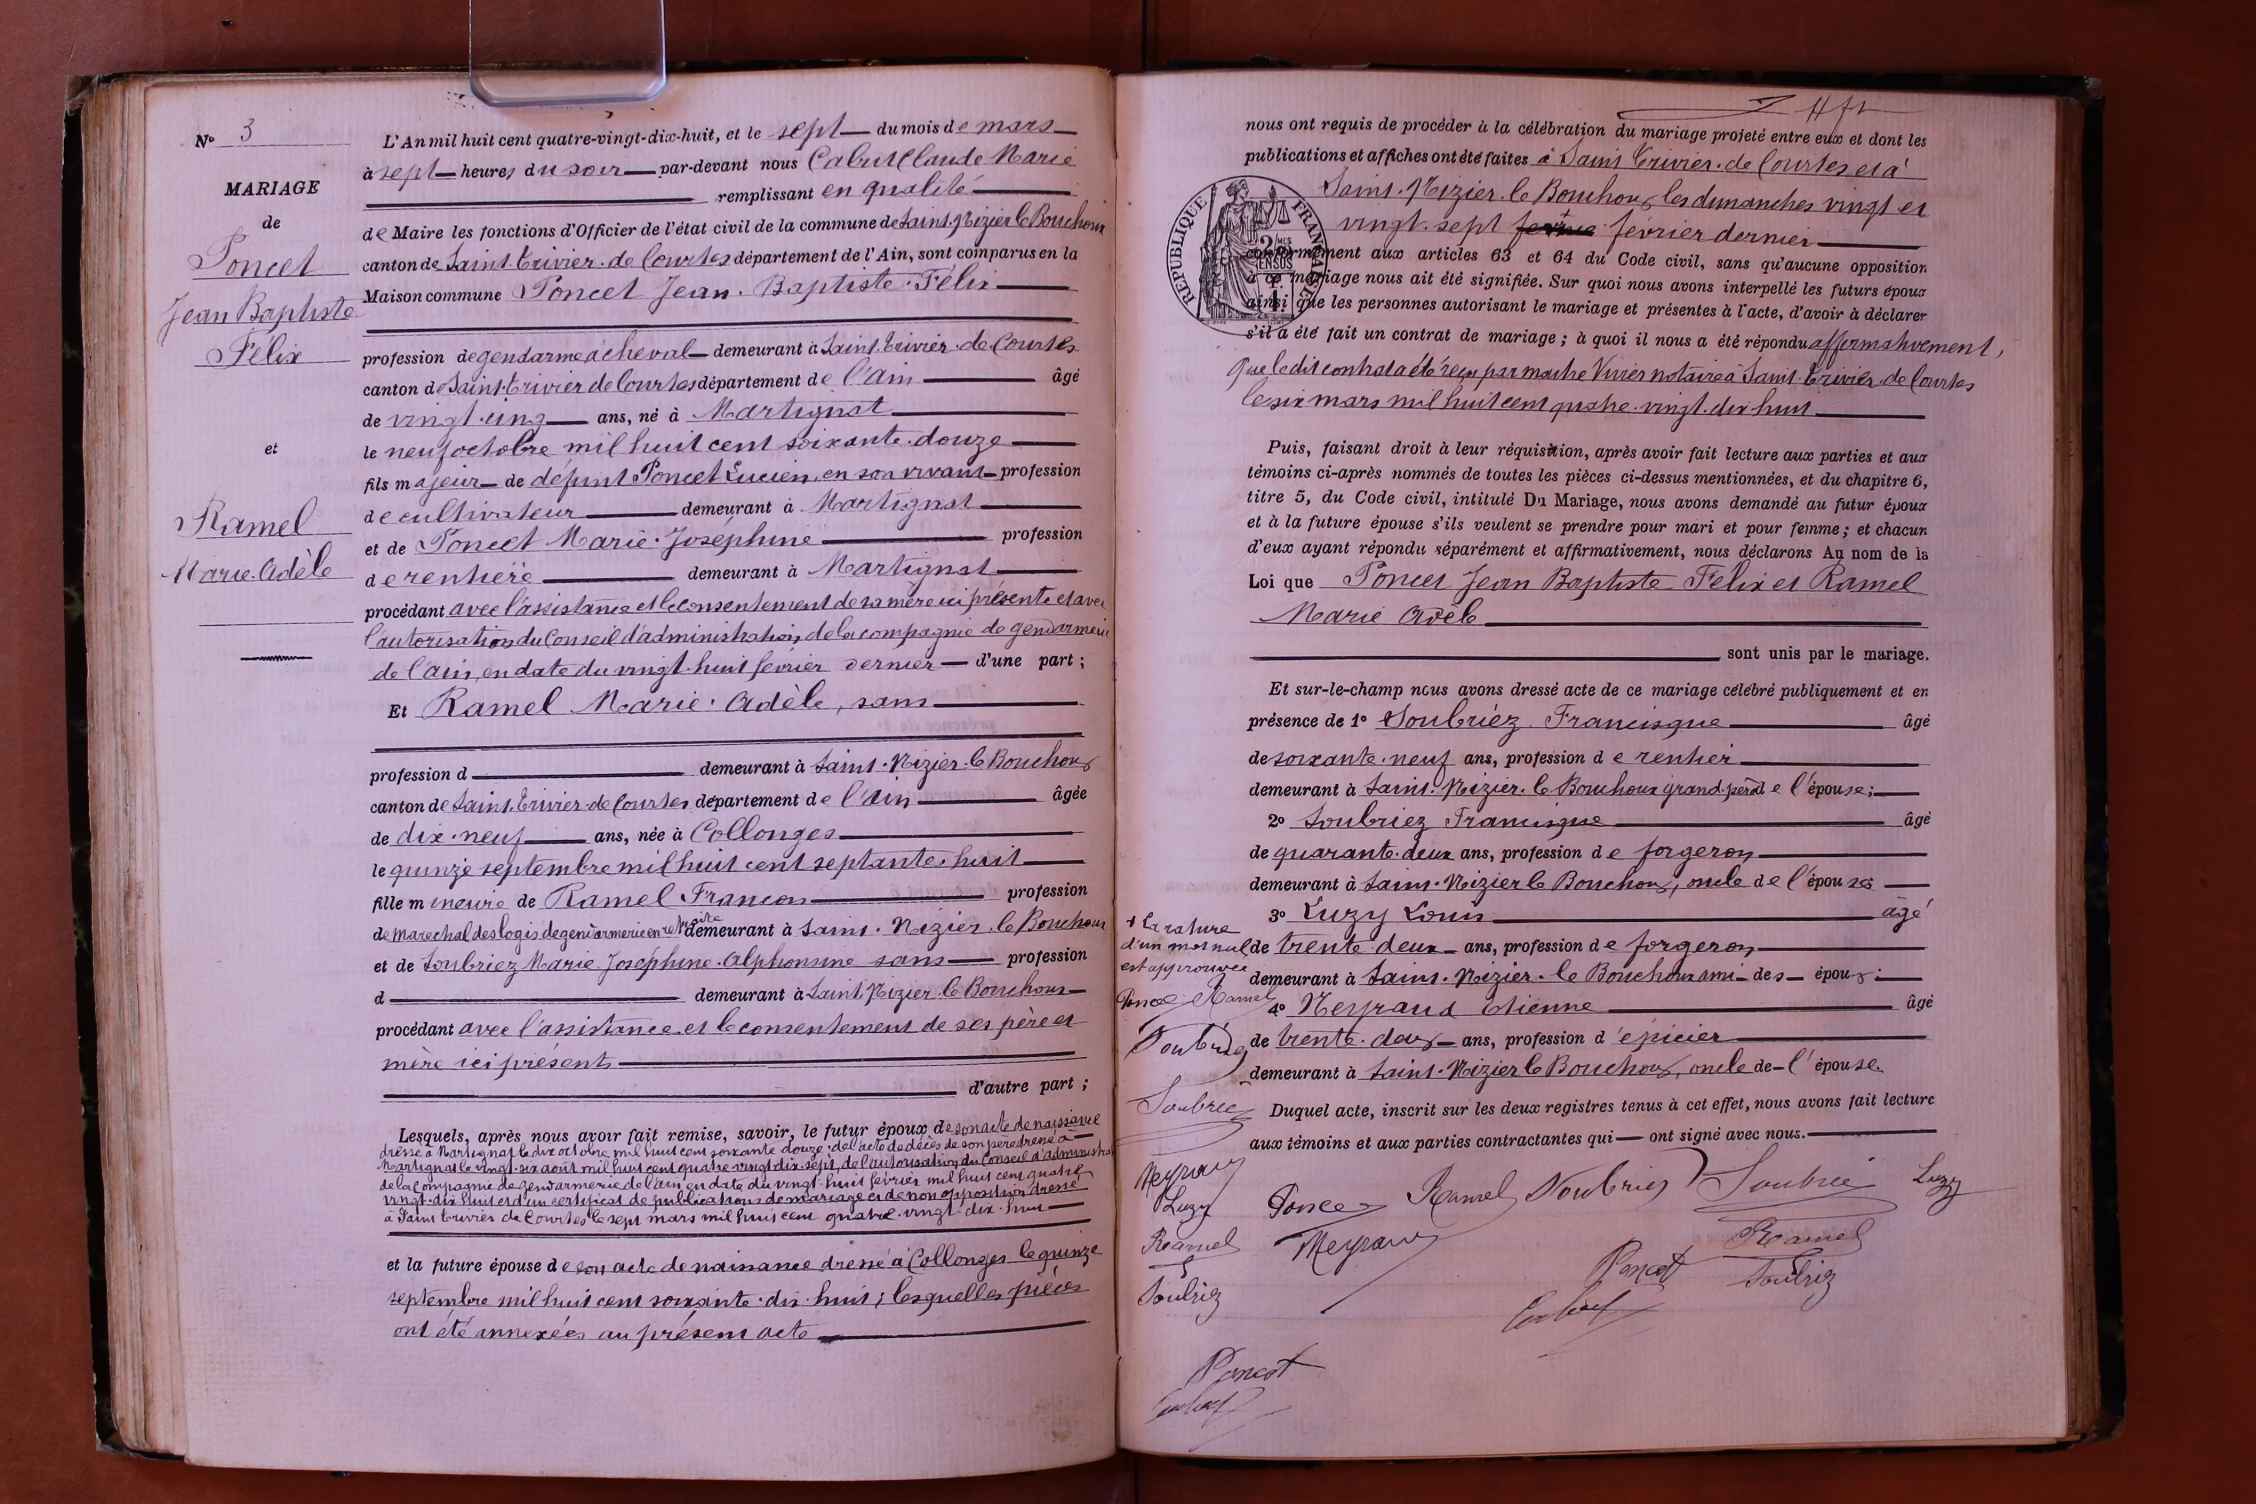 N° 3
MARIAGE
de
Poncet
Jean Baptiste
Félix
et
Ramel
Marie Adèle
L'An mil huit cent quatre-vingt-dix-huit, et le sept du mois de mars
à sept heures du soir par-devant nous Cabut Claude Marie
remplissant en qualité
de Maire les fonctions d'Officier de l'état civil de la commune de Saint-Nizier le Bouchoux
canton de Saint-Trivier-de Courtes département de l'Ain, sont comparus en la
Maison commune Poncet Jean-Baptiste-Félix
profession de gendarme à cheval demeurant à Saint-Trivier-de-Courtes
canton de Saint-Trivier de Courtes département de l'Ain âgé
de vingt-cinq ans, né à Martignat
le neuf octobre mil huit cent soixante-douze
fils majeur de défunt Poncet Lucien, en son vivant profession
de cultivateur demeurant à Martignat
et de Poncet Marie-Joséphine profession
de rentière demeurant à Martignat
procédant avec l'assistance et le consentement de sa mère ici présente et avec
l'autorisation du Conseil d'administration de la compagnie de gendarmerie
de l'Ain, en date du vingt-huit février dernier d'une part ;
Et Ramel Marie-Adèle, sans
profession d demeurant à Saint-Nizier-le Bouchoux
canton de Saint-Trivier-de Courtes département de l'Ain âgée
de dix-neuf ans, née à Collonges
le quinze septembre mil huit cent septante-huit
fille mineure de Ramel François profession
de marechal des logis de gendarmerie en retraite demeurant à Saint-Nizier-le Bouchoux
et de Soubriez Marie Joséphine-Alphonsine sans profession
d demeurant à Saint Nizier-le Bouchoux
procédant avec l'assistance et le consentement de ses père et
mère ici présents
d'autre part ;
Lesquels, après nous avoir fait remise, savoir, le futur époux de son acte de naissance
dressé à Martignat le dix octobre mil huit cent soixante douze; de l'acte de décès de son père dressé à
Martignat le vingt-six août mil huit cent quatre-vingt dix-sept, de l'autorisation du Conseil d'administration
de la Compagnie de gendarmerie de l'Ain en date du vingt-huit février mil huit cent quatre
vingt-dix huit et d'un certificat de publications de mariage et de non opposition dressé
à Saint Trivier de Courtes le sept mars mil huit cent quatre-vingt-dix-huit
et la future épouse de son acte de naissance dressé à Collonges le quinze
septembre mil huit cent soixante-dix-huit ; lesquelles pièces
ont été annexées au présent acte
nous ont requis de procéder à la célébration du mariage projeté entre eux et dont les
publications et affiches ont été faites à Saint Trivier-de Courtes et à
Saint-Nizier-le Bouchoux les dimanches vingt et
vingt-sept février dernier
RÉPUBLIQUE FRANÇAISE
conformément aux articles 63 et 64 du Code civil, sans qu'aucune opposition
à ce mariage nous ait été signifiée. Sur quoi nous avons interpellé les futurs époux
ainsi que les personnes autorisant le mariage et présentes à l'acte, d'avoir à déclarer
s'il a été fait un contrat de mariage ; à quoi il nous a été répondu affirmativement,
que le dit contrat a été reçu par maître Vivier notaire à Saint-Trivier-de Courtes
le six mars mil huit cent quatre-vingt-dix huit
Puis, faisant droit à leur réquisition, après avoir fait lecture aux parties et aux
témoins ci-après nommés de toutes les pièces ci-dessus mentionnées, et du chapitre 6,
titre 5, du Code civil, intitulé Du Mariage, nous avons demandé au futur époux
et à la future épouse s'ils veulent se prendre pour mari et pour femme ; et chacun
d'eux ayant répondu séparément et affirmativement, nous déclarons Au nom de la
Loi que Poncet Jean Baptiste Félix et Ramel
Marie Adèle
sont unis par le mariage.
Et sur-le-champ nous avons dressé acte de ce mariage célébré publiquement et en
présence de 1° Soubriez Francisque âgé
de soixante-neuf ans, profession de rentier
demeurant à Saint-Nizier-le Bouchoux grand-père de l'épouse;
2° Soubriez Francisque âgé
de quarante-deux ans, profession de forgeron
demeurant à Saint-Nizier le Bouchoux, oncle de l'épouse
3° Luzy Louis âgé
de trente deux ans, profession de forgeron
demeurant à Saint-Nizier-le Bouchoux ami des époux;
4° Neyraud Etienne âgé
de trente-deux ans, profession d'épicier
demeurant à Saint-Nizier le Bouchoux, oncle de l'épouse.
Duquel acte, inscrit sur les deux registres tenus à cet effet, nous avons fait lecture
aux témoins et aux parties contractantes qui ont signé avec nous.
+ La rature
d'un mot nul
est approuvée
Poncet Ramel
Soubriez
Soubriez
Neyraud
Luzy
Ramel
Soubriez
Poncet
Cabut
Poncet Ramel Soubriez Soubriez Luzy
Neyraud Poncet Ramel
Soubriez
Cabut